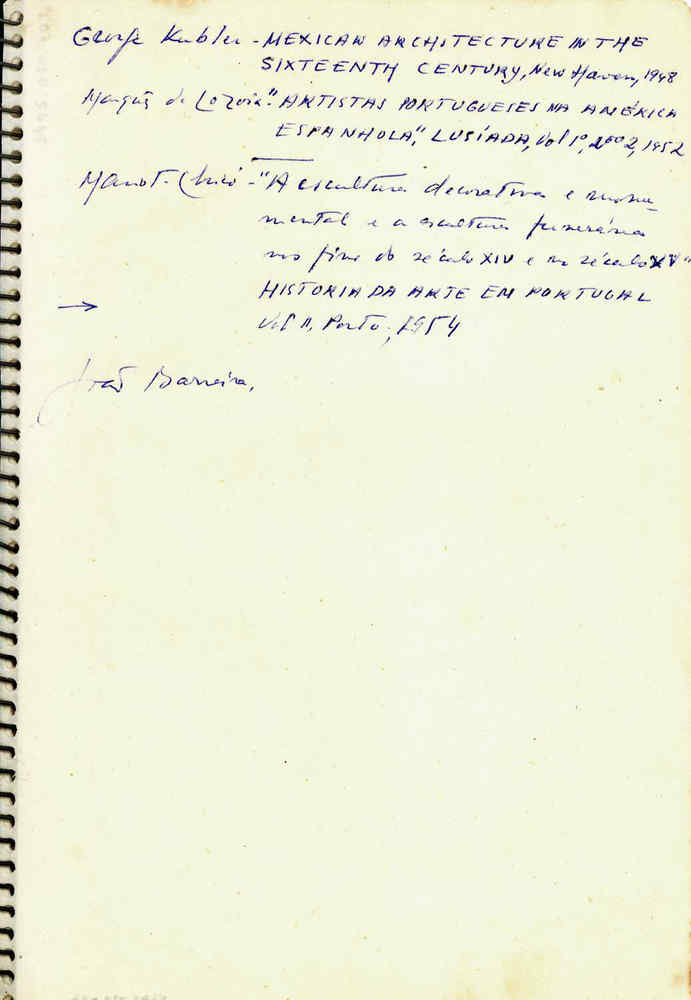 George Kubler - MEXICAN ARCHITECTURE IN THE
SIXTEENTH CENTURY, New Haven, 1948
Marquês de Lozoia - "ARTISTAS PORTUGUESES NA AMÉRICA
ESPANHOLA", LUSÍADA, Vol 1º, nº 2, 1952
Mario T. Chicó - "A escultura decorativa e monu-
mental e a escultura funerária
no fim do século XIV e no século XV"
HISTORIA DA ARTE EM PORTUGAL
Vol II, Porto, 1954
João Barreira,